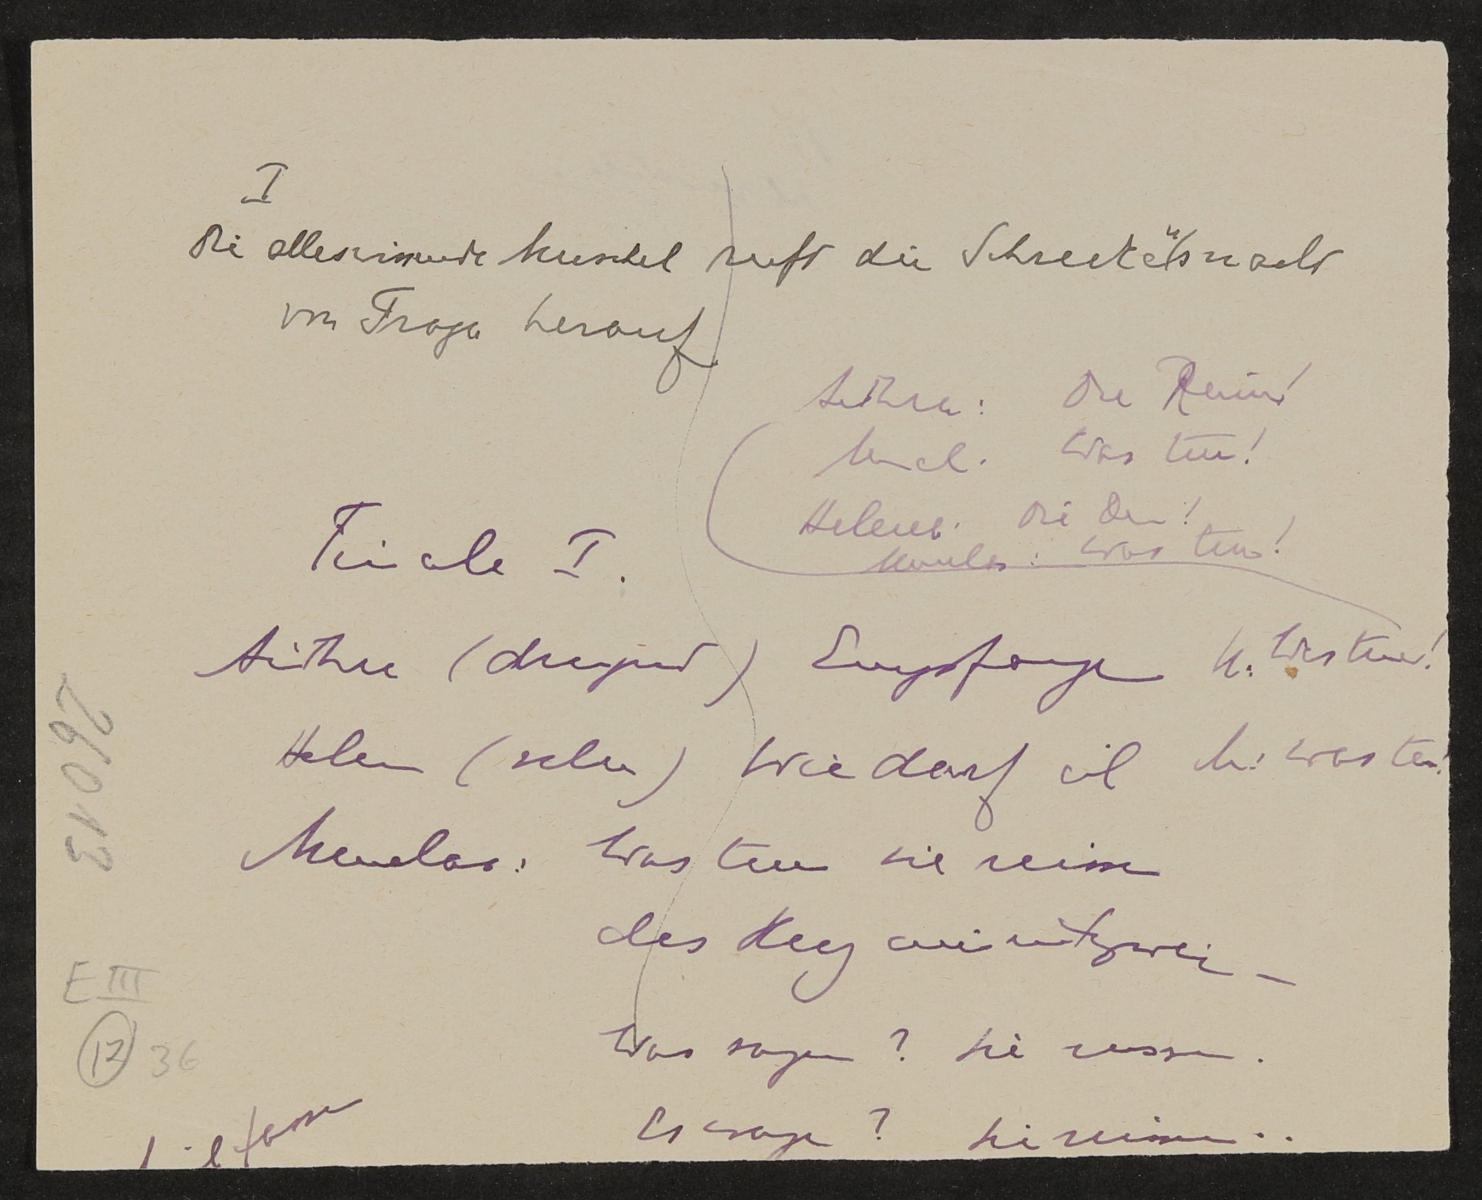 I
Die alleswissende Muschel ruft die Schreckensnacht
von Troja herauf
Aithra: Die
Menel. Was tun!
Helena. Die
Menelas: Was tun!
Finale I.
Aithra (dringend) Empfange M: Was tun!
Helena Wie darf ich M: Was tun!
Menelas: Was tun sie reissen
das Herz mir entzwei –
Was sagen? Sie
Es wagen? Sie reissen..
26013
E III
12 36